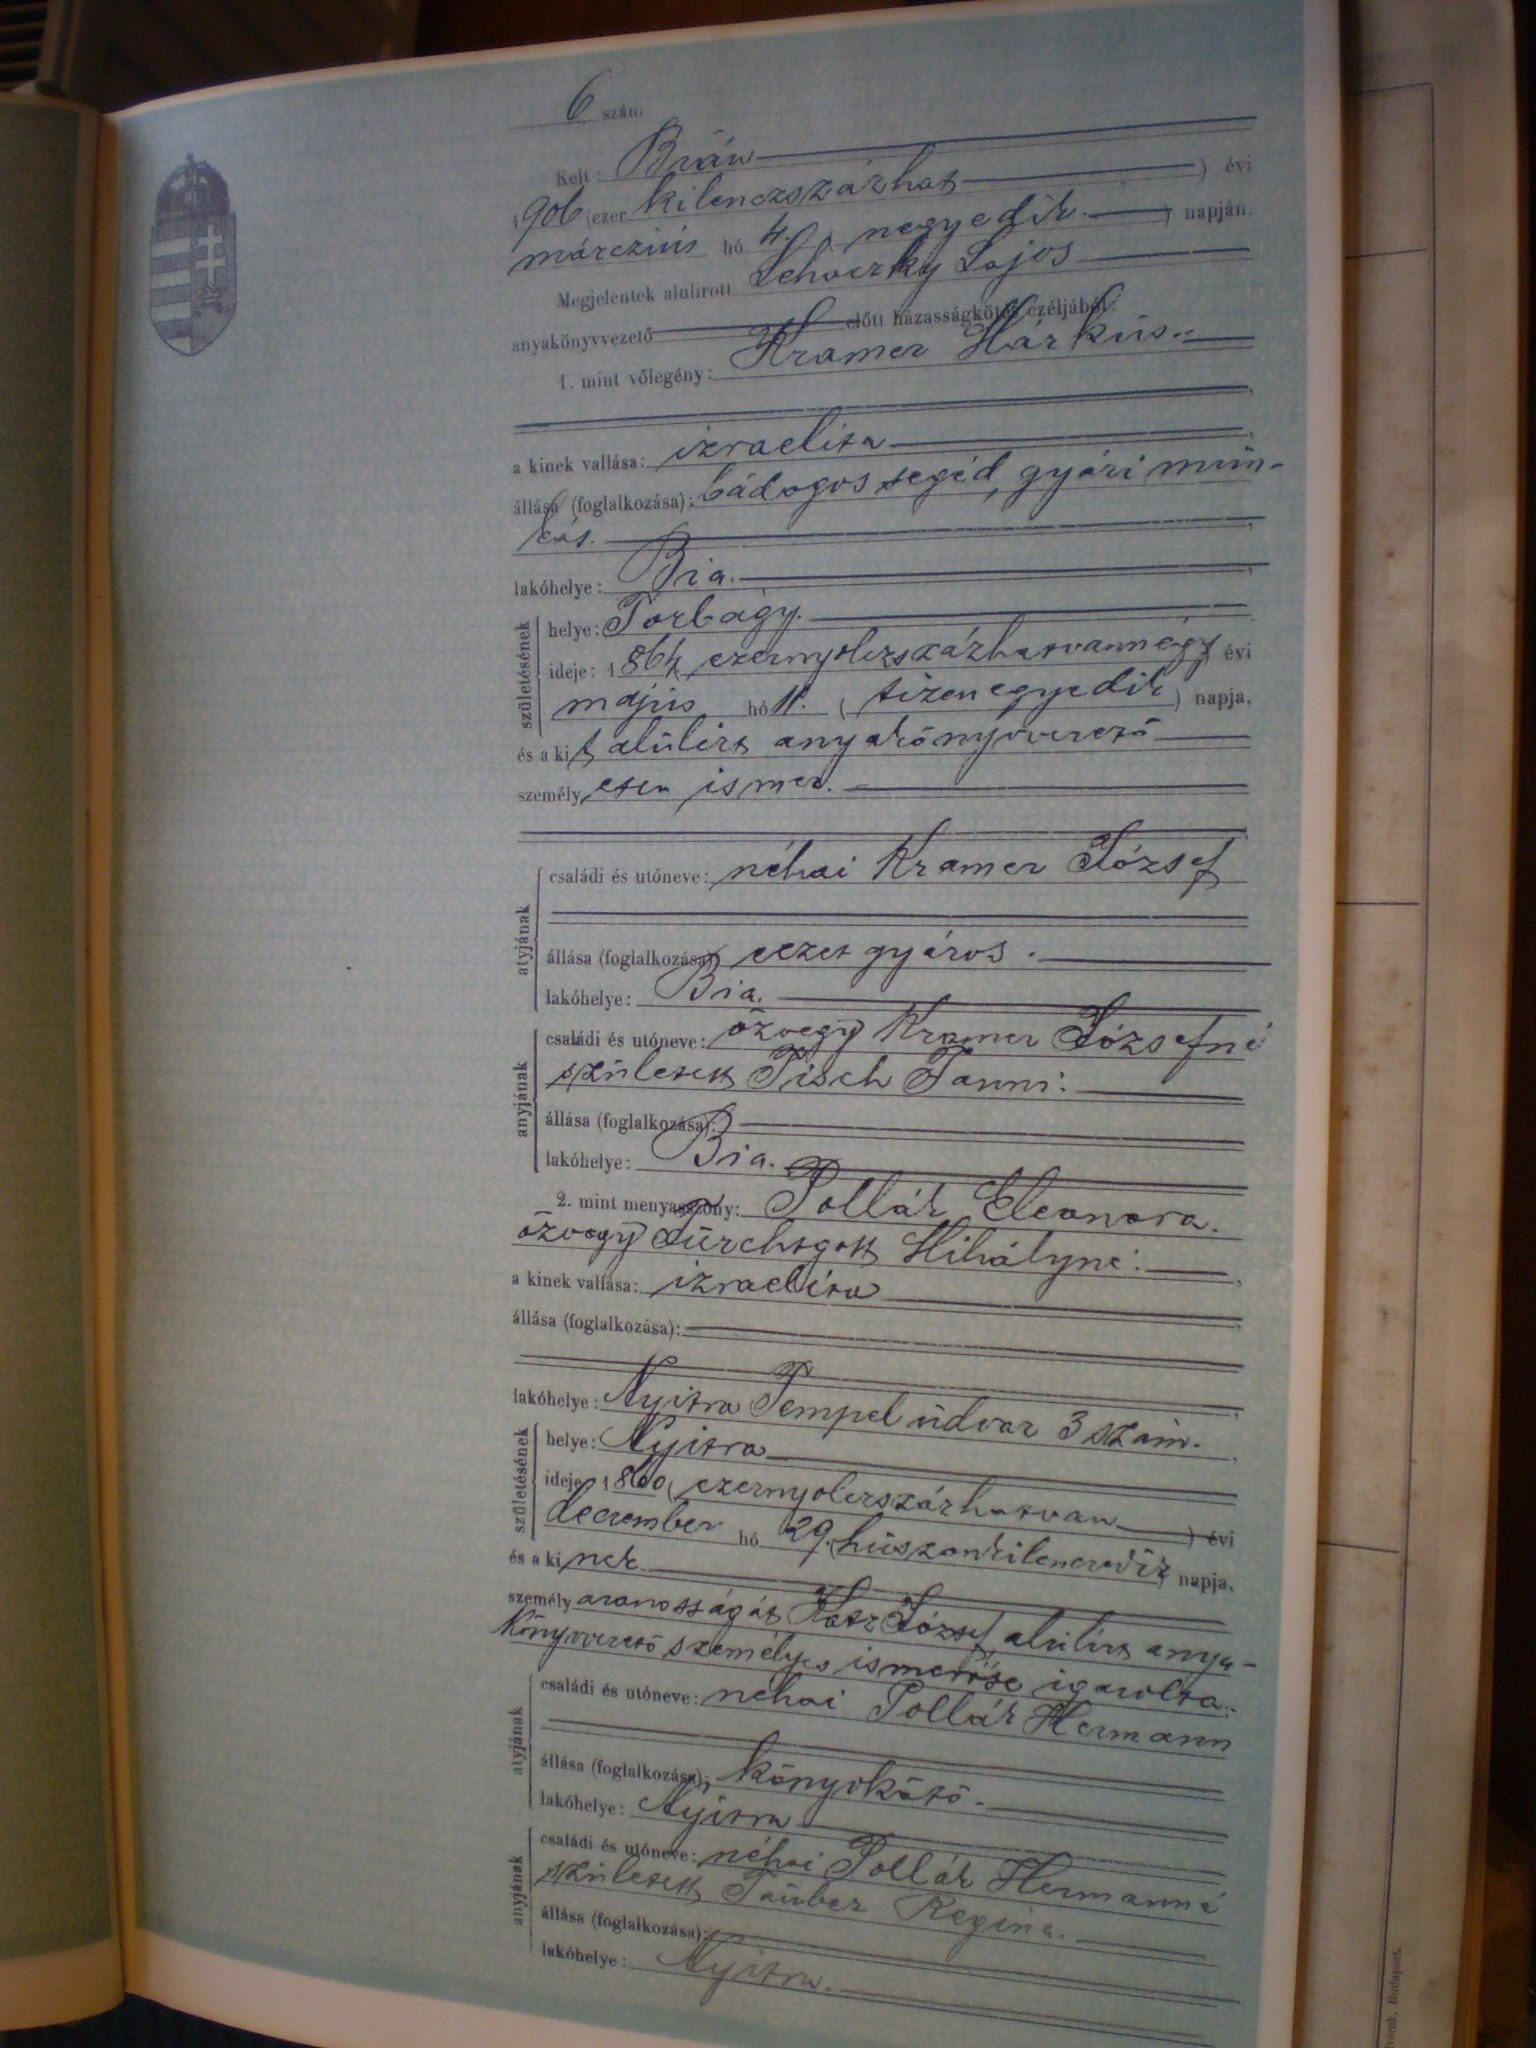 6 szám
Kelt: Bián
1906 (ezer kilenczszázhat) évi
márczius hó 4. negyedik. ) napján.
Megjelentek alulirott Lehoczky Lajos
anyakönyvvezető előtt házasságkötés czéljából:
1. mint vőlegény: Kramer Márkus.
a kinek vallása: izraelita
állása (foglalkozása): bádogos segéd, gyári mun-
kás.
lakóhelye: Bia.
születésének
helye: Torbágy.
ideje: 1864 ezernyolczszázhatvannégy évi
május hó 11. (tizenegyedik) napja,
és a kit alulirt anyakönyvvezető
személyesen ismer.
atyjának
családi és utóneve: néhai Kramer József
állása (foglalkozása): eczet gyáros.
lakóhelye: Bia.
anyjának
családi és utóneve: özvegy Kramer Józsefné
született Fanni.
állása (foglalkozása):
lakóhelye: Bia.
2. mint menyasszony: Pollák Eleonora.
özvegy Fürchtgott Mihályné.
a kinek vallása: izraelita
állása (foglalkozása):
lakóhelye: Nyitra Tempel udvar 3 szám.
születésének
helye: Nyitra
ideje 1860 (ezernyolczszázhatvan) évi
deczember hó 29. (huszonkilenczedik) napja,
és a kinek
személyazonosságát Katz József, alulirt anya-
könyvvezető személyes ismerőse igazolta.
atyjának
családi és utóneve: néhai Pollák Hermann
állása (foglalkozása): könyvkötő.
lakóhelye: Nyitra
anyjának
családi és utóneve: néhai Pollák Hermanné
született Tauber Regina.
állása (foglalkozása):
lakóhelye: Nyitra.
Budapest.